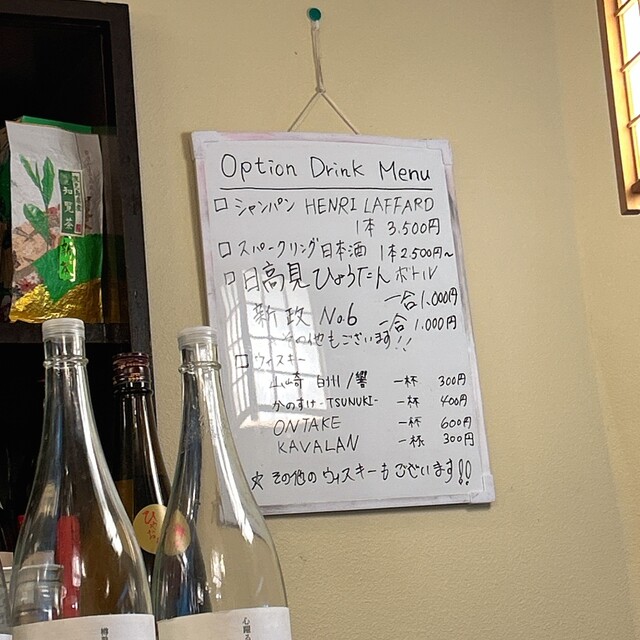 Option Drink Menu
□ シャンパン HENRI LAFFARD
1本 3,500円
□ スパークリング日本酒 1本 2,500円~
□ 日高見 ひょうたんボトル
一合 1,000円
新政 No.6 一合 1,000円
その他もございます!!
□ ウィスキー
山崎 白州/響 一杯 300円
かのすけ -TSUNUKI- 一杯 400円
ONTAKE 一杯 600円
KAVALAN 一杯 300円
☆ その他のウィスキーもございます!!
知覧茶